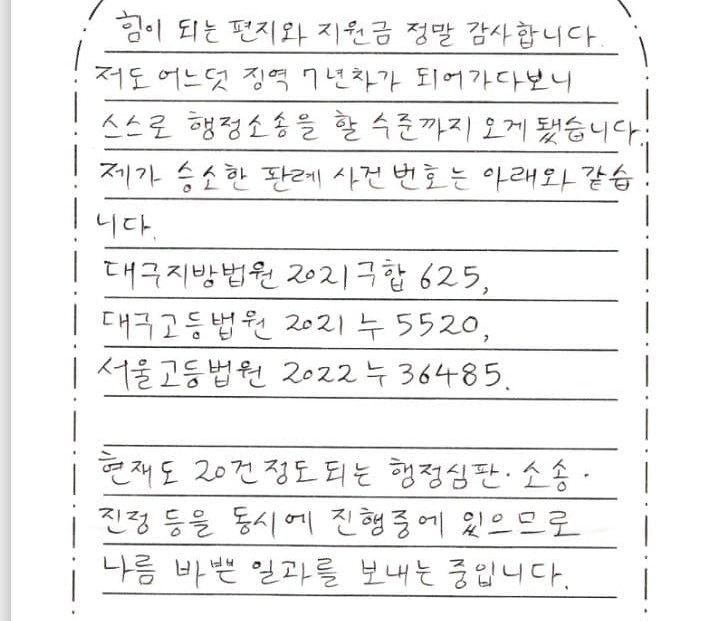 힘이 되는 편지와 지원금 정말 감사합니다.
저도 어느덧 징역 7년차가 되어가다보니
스스로 행정소송을 할 수준까지 오게 됐습니다.
제가 승소한 판례 사건번호는 아래와 같습
니다.
대구지방법원 2021구합 625,
대구고등법원 2021누 5520,
서울고등법원 2022누 36485.
현재도 20건정도 되는 행정심판·소송·
진정 등을 동시에 진행중에 있으므로
나름 바쁜 일과를 보내는 중입니다.